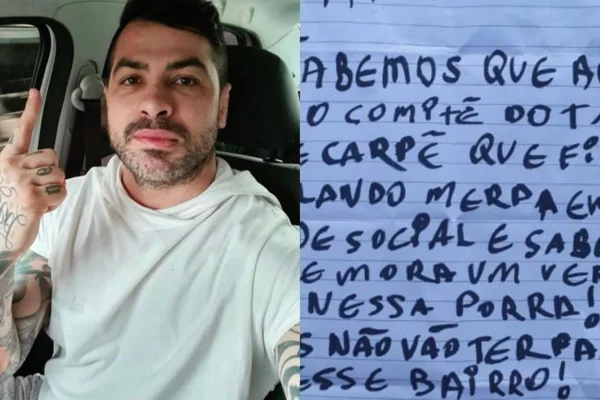 ABEMOS QUE A
O COMPTÊ DO TA
E CARPÊ QUE FI
LANDO MERPA EM
DE SOCIAL E SABE
E MORA UM VER
NESSA PORRA!
S NÃO VÃO TER PA
ESSE BAIRRO!